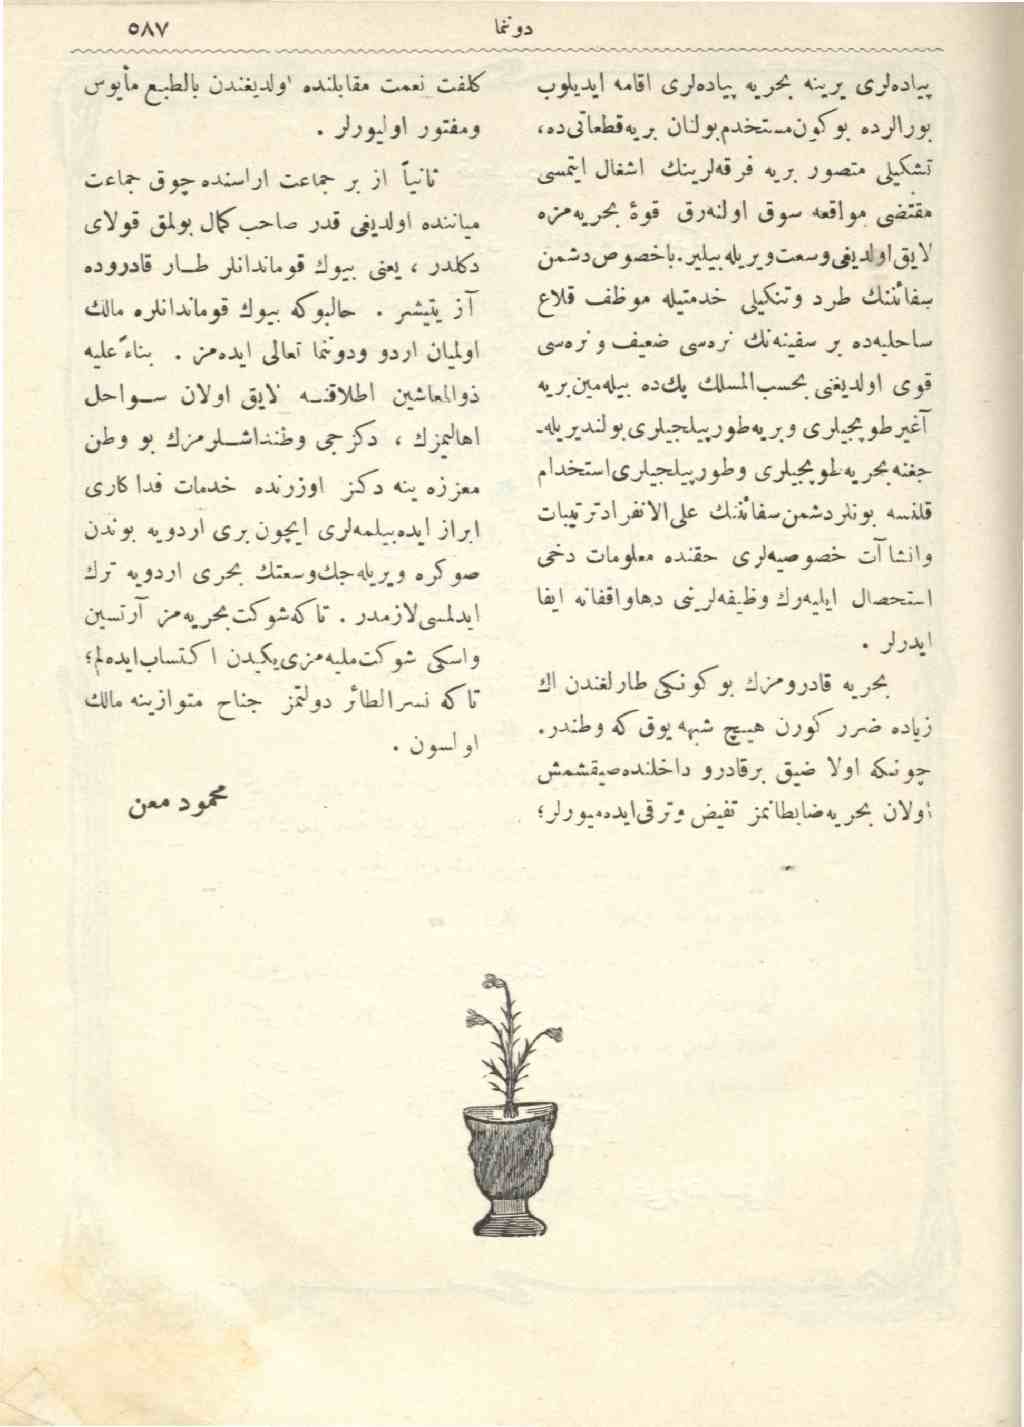 دوننما
٥٨٧
پیاده‌لری یرینه بحریه پیاده‌لری اقامه ایدیلوب
بورالرده بوكون مستخدم بولنان بریه قطعاتی ده،
تشكیلی متصور بریه فرقه‌لرینك اشغال ایتمسی
مقتضی مواقعه سوق اولنه‌رق قوۀ بحریه‌مزه
لایق اولدیغی وسعت ویریله بیلیر. باخصوص دشمن
سفائننك طرد وتنكیلی خدمتیله موظف قلاع
ساحلیه‌ده بر سفینه‌نك نره‌سی ضعیف و نره‌سی
قوی اولدیغنی بحسب المسلك پك ده بیله‌مین بریه
آغیر طوپجیلری و بریه طورپیلجیلری بولندیریله-
جغنه بحریه طوپجیلری وطورپیلجیلری استخدام
قلنسه بونلر دشمن سفائننك علی الانفراد ترتیبات
وانشاآت خصوصیه‌لری حقنده معلومات دخی
استحصال ایلیه‌رك وظیفه‌لرینی دها واقفانه ایفا
ایدرلر .
بحریه قادرومزك بو كونكی طارلغندن اك
زیاده ضرر كورن هیچ شبهه یوق كه وطندر.
چونكه اولا ضیق بر قادرو داخلنده صیقشمش
اولان بحریه ضابطانمز تفیض وترقی ایده‌میورلر؛
كلفت نعمت مقابلنده اولدیغندن بالطبع مأیوس
ومفتور اولیورلر .
ثانیاً از بر جماعت اراسنده چوق جماعت
میاننده اولدیغی قدر صاحب كمال بولمق قولای
دكلدر ، یعنی بیوك قوماندانلر طار قادروده
آز یتیشیر . حالبوكه بیوك قوماندانلره مالك
اولمیان اردو ودوننما تعالی ایده‌مز . بناءً علیه
ذوالمعاشین اطلاقنه لایق اولان سواحل
اهالیمزك ، دكزجی وطنداشلرمزك بو وطن
معززه ینه دكز اوزرنده خدمات فداكاری
ابراز ایده‌بیلمه‌لری ایچون بری اردویه بوندن
صوكره ویریله‌جك وسعتك بحری اردویه ترك
ایدلمسی لازمدر . تا كه شوكت بحریه‌مز آرتسین
واسكی شوكت ملیه‌مزی یكیدن اكتساب ایده‌لم؛
تا كه نسر الطائر دولتمز جناح متوازینه مالك
اولسون .
محمود معن